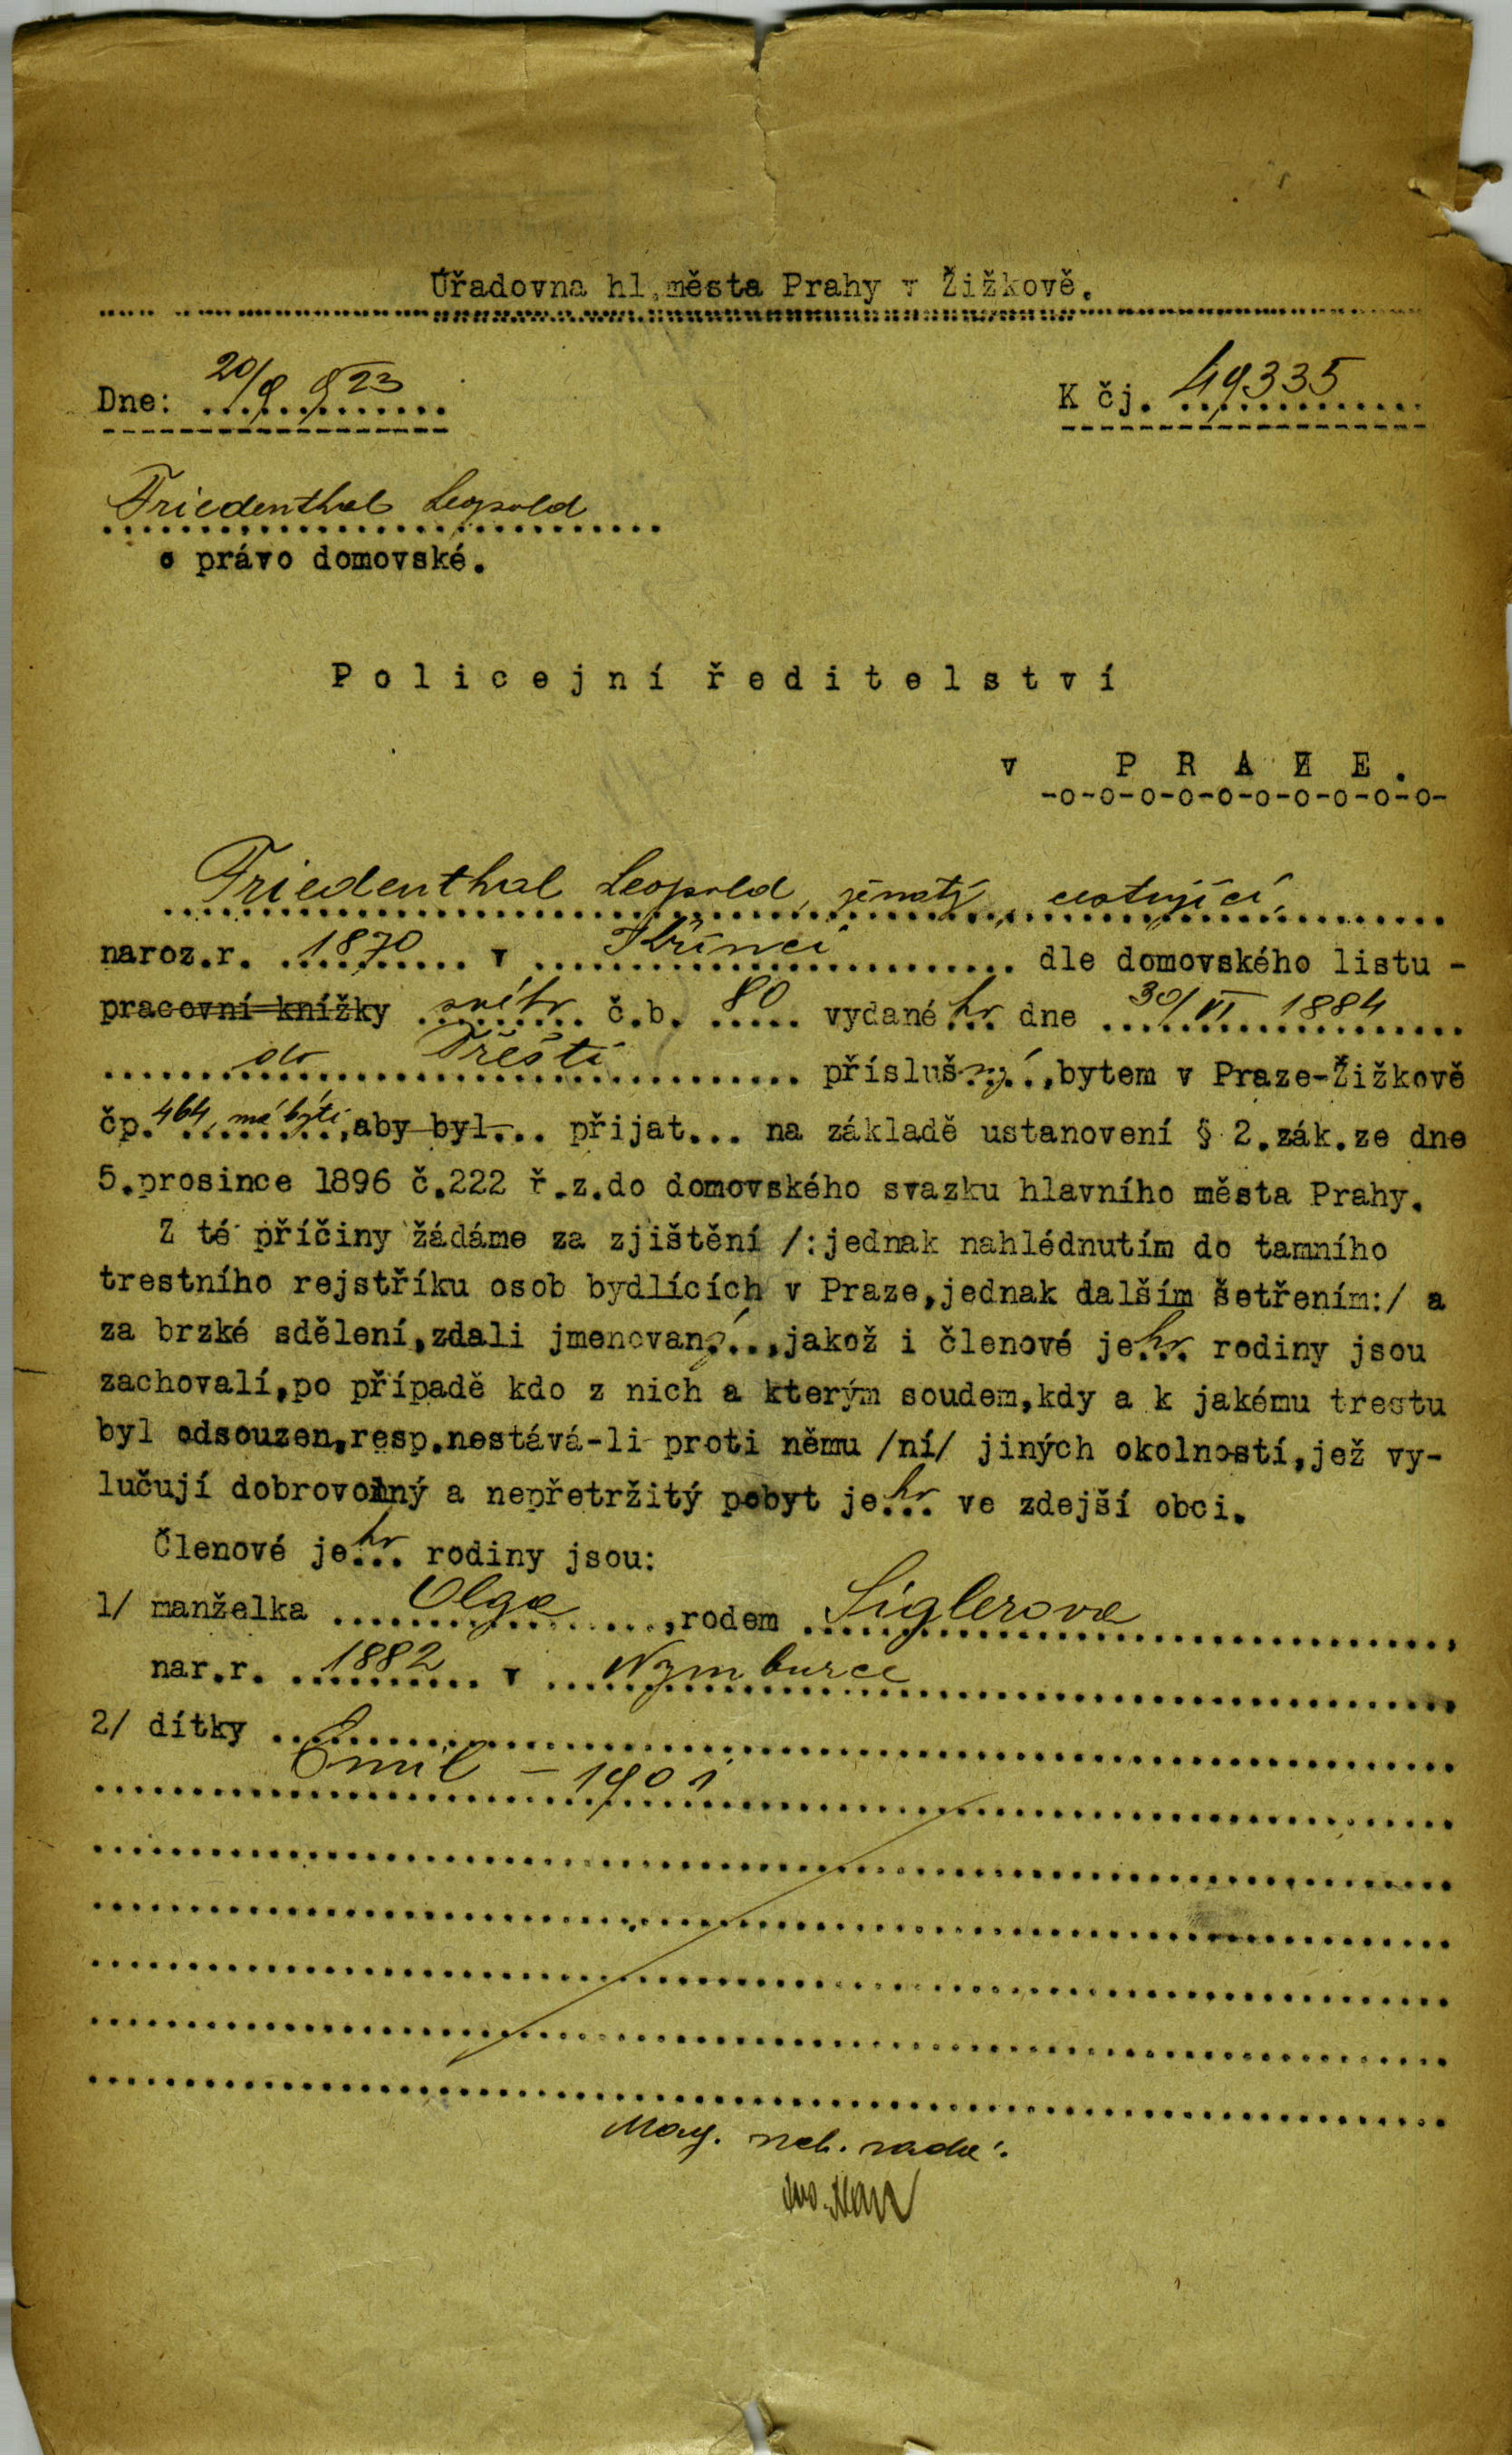 Úřadovna hl.města Prahy v Žižkově.
Dne: 20/9 923
K čj. 49335
Friedenthal Leopold
o právo domovské.
Policejní ředitelství
v PRAZE.
-o-o-o-o-o-o-o-o-o-o-
Friedenthal Leopold, ženatý, cestující,
naroz.r. 1870 v Křinci dle domovského listu -
pracovní knížky svého č.b. 80 vydané ho dne 30/VI 1884
do Třeště přísluš ný, bytem v Praze-Žižkově
čp. 464, má býti, aby byl... přijat... na základě ustanovení § 2.zák.ze dne
5.prosince 1896 č.222 ř.z.do domovského svazku hlavního města Prahy.
Z té příčiny žádáme za zjištění /:jednak nahlédnutím do tamního
trestního rejstříku osob bydlících v Praze,jednak dalším šetřením:/ a
za brzké sdělení,zdali jmenovan ý..,jakož i členové je ho rodiny jsou
zachovalí,po případě kdo z nich a kterým soudem,kdy a k jakému trestu
byl odsouzen,resp.nestává-li proti němu /ní/ jiných okolností,jež vy-
lučují dobrovolný a nepřetržitý pobyt je ho ve zdejší obci.
Členové je ho rodiny jsou:
1/ manželka Olga ,rodem Siglerova
nar.r. 1882 v Nymburce
2/ dítky
Emil - 1901
Mag. rada: